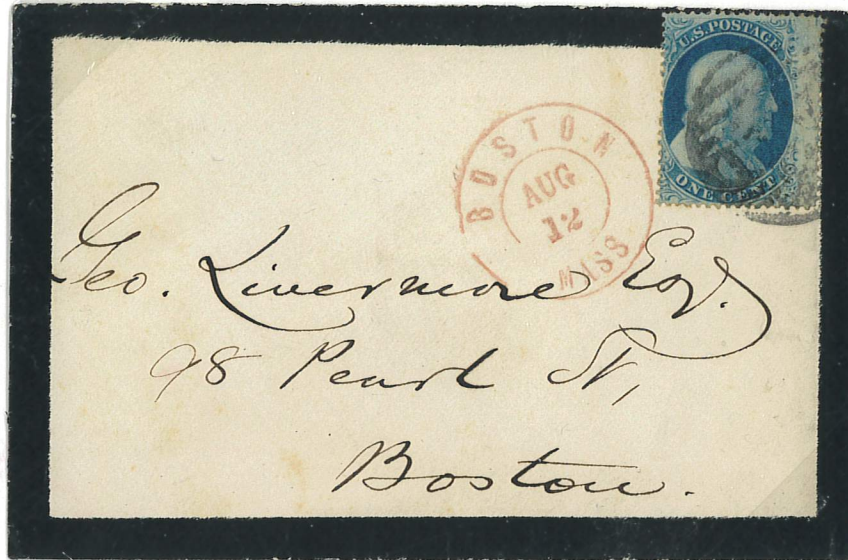 U.S. POSTAGE
ONE CENT
BOSTON
AUG
12
MASS
Geo. Livermore Esq.
98 Pearl St,
Boston.